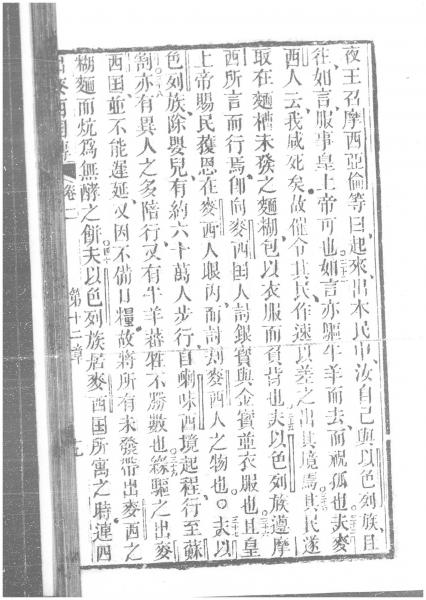 夜王召摩西亞倫等曰起來出本民中汝自己與以色列族且
往如言服事皇上帝可也如言亦驅牛羊而去而祝孤也夫麥
西人云我咸死矣故催令其民作速差之出其境焉其民遂
取在麵槽未發之麵糊包以衣服而負背也夫以色列族遵摩
西所言而行焉即向麥西国人討銀寶與金寶並衣服也且皇
上帝賜民獲恩在麥西人眼內而討刮麥西人之物也夫以
色列族除嬰兒有約六十萬人步行自喇味西境起程行至蘇
割亦有異人之多陪行又有牛羊蕃牲不勝數也緣驅之出麥
西国並不能遲延又因不備口糧故將所有未發帶出麥西之
糊麵而炕爲無酵之餅夫以色列族居麥西国所寓之時連四
第十二章